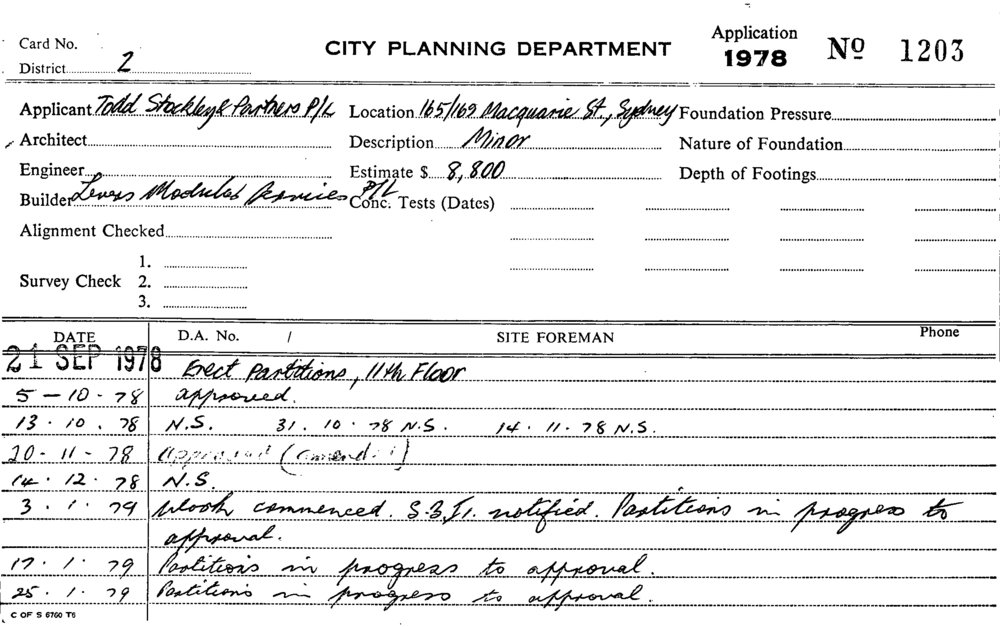 Card No.
District 2
CITY PLANNING DEPARTMENT
Application
1978 No 1203
Applicant Todd Stockley & Partners P/L Location 165/169 Macquarie St., Sydney Foundation Pressure
Architect Description Minor Nature of Foundation
Engineer Estimate $ 8,800 Depth of Footings
Builder Modular Services P/L Conc. Tests (Dates)
Alignment Checked
1.
Survey Check 2.
3.
DATE D.A. No. / SITE FOREMAN Phone
21 SEP 1978 Erect Partitions, 11th Floor
5 - 10 - 78 approved.
13 . 10 . 78 N.S. 31 . 10 . 78 N.S. 14 . 11 . 78 N.S.
20 - 11 - 78 approved (amend.
14 . 12 . 78 N.S.
3 . 1 . 79 Work commenced. notified. Partitions in progress to
approval.
17 . 1 . 79 Partitions in progress to approval.
25 . 1 . 79 Partitions in progress to approval.
C OF S 6760 T6